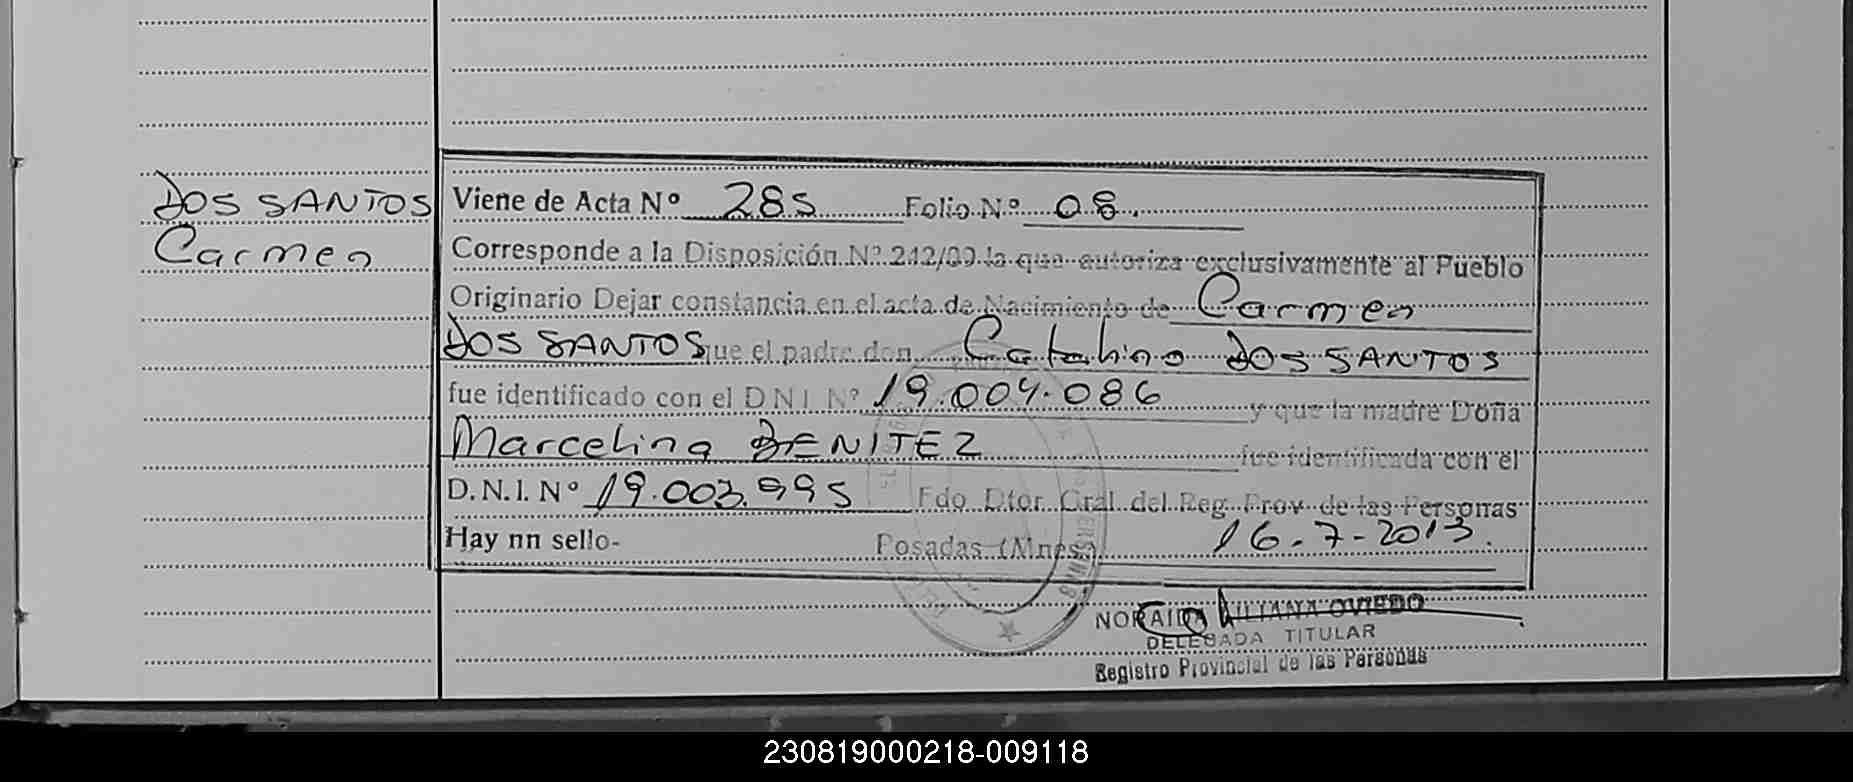 DOS SANTOS
Carmen
Viene de Acta Nº 285 Folio Nº 08.
Corresponde a la Disposición Nº 242/09 la que autoriza exclusivamente al Pueblo
Originario Dejar constancia en el acta de Nacimiento de Carmen
DOS SANTOS que el padre don Catalino DOS SANTOS
fue identificado con el D N I Nº 19.004.086 y que la madre Doña
Marcelina BENITEZ fue identificada con el
D.N.I. Nº 19.003.995 Fdo Dtor Gral del Reg Prov de las Personas
Hay nn sello- Posadas (Mnes) 16-7-2013.
NORAIDA LILIANA OVIEDO
DELEGADA TITULAR
Registro Provincial de las Personas
230819000218-009118